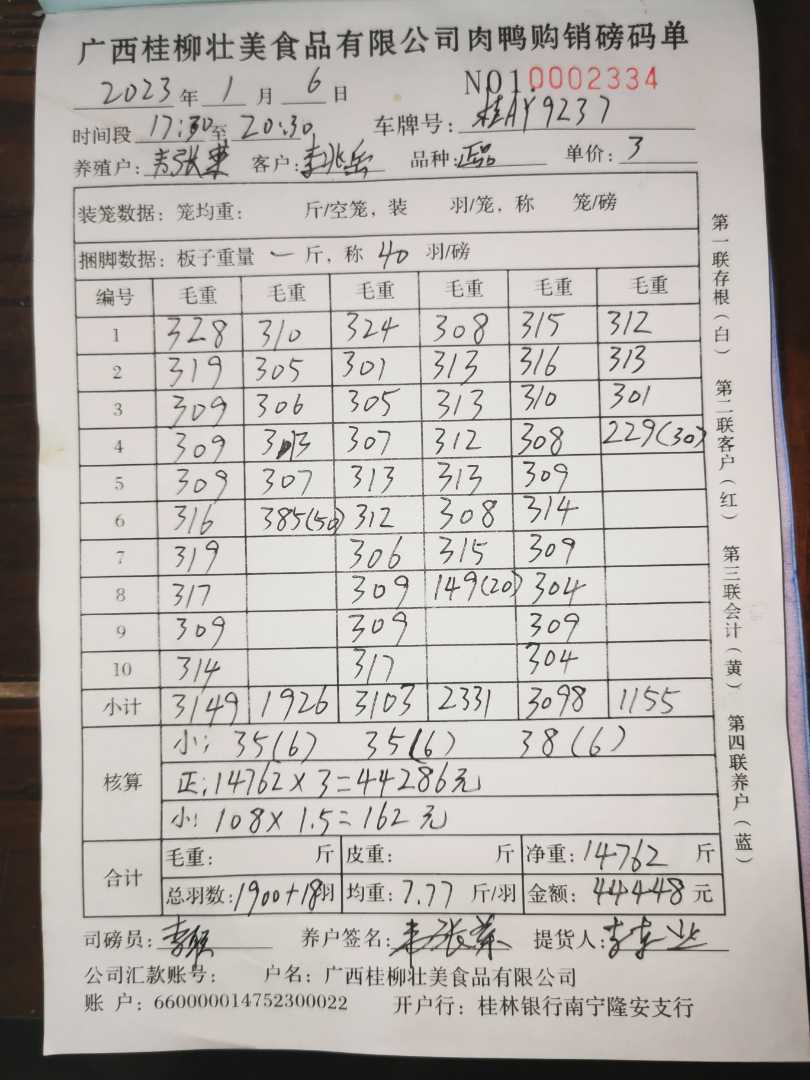 广西桂柳壮美食品有限公司肉鸭购销磅码单
2023年1月6日 NO10002334
时间段17:30至20:30 车牌号:桂AY9237
养殖户: 客户:李兆岳 品种:正品 单价:3
装笼数据:笼均重: 斤/空笼,装 羽/笼,称 笼/磅
捆脚数据:板子重量 一 斤,称 40 羽/磅
编号 毛重 毛重 毛重 毛重 毛重 毛重
1 328 310 324 308 315 312
2 319 305 301 313 316 313
3 309 306 305 313 310 301
4 309 313 307 312 308 229(30)
5 309 307 313 313 309
6 316 385(50) 312 308 314
7 319 306 315 309
8 317 309 149(20) 304
9 309 309 309
10 314 317 304
小计 3149 1926 3103 2331 3098 1155
核算
小:35(6) 35(6) 38(6)
正:14762×3=44286元
小:108×1.5=162元
合计
毛重: 斤 皮重: 斤 净重:14762 斤
总羽数:1900+18羽 均重:7.77 斤/羽 金额:44448元
司磅员: 养户签名: 提货人:
公司汇款账号: 户名:广西桂柳壮美食品有限公司
账 户:660000014752300022 开户行:桂林银行南宁隆安支行
第一联存根(白) 第二联客户(红) 第三联会计(黄) 第四联养户(蓝)